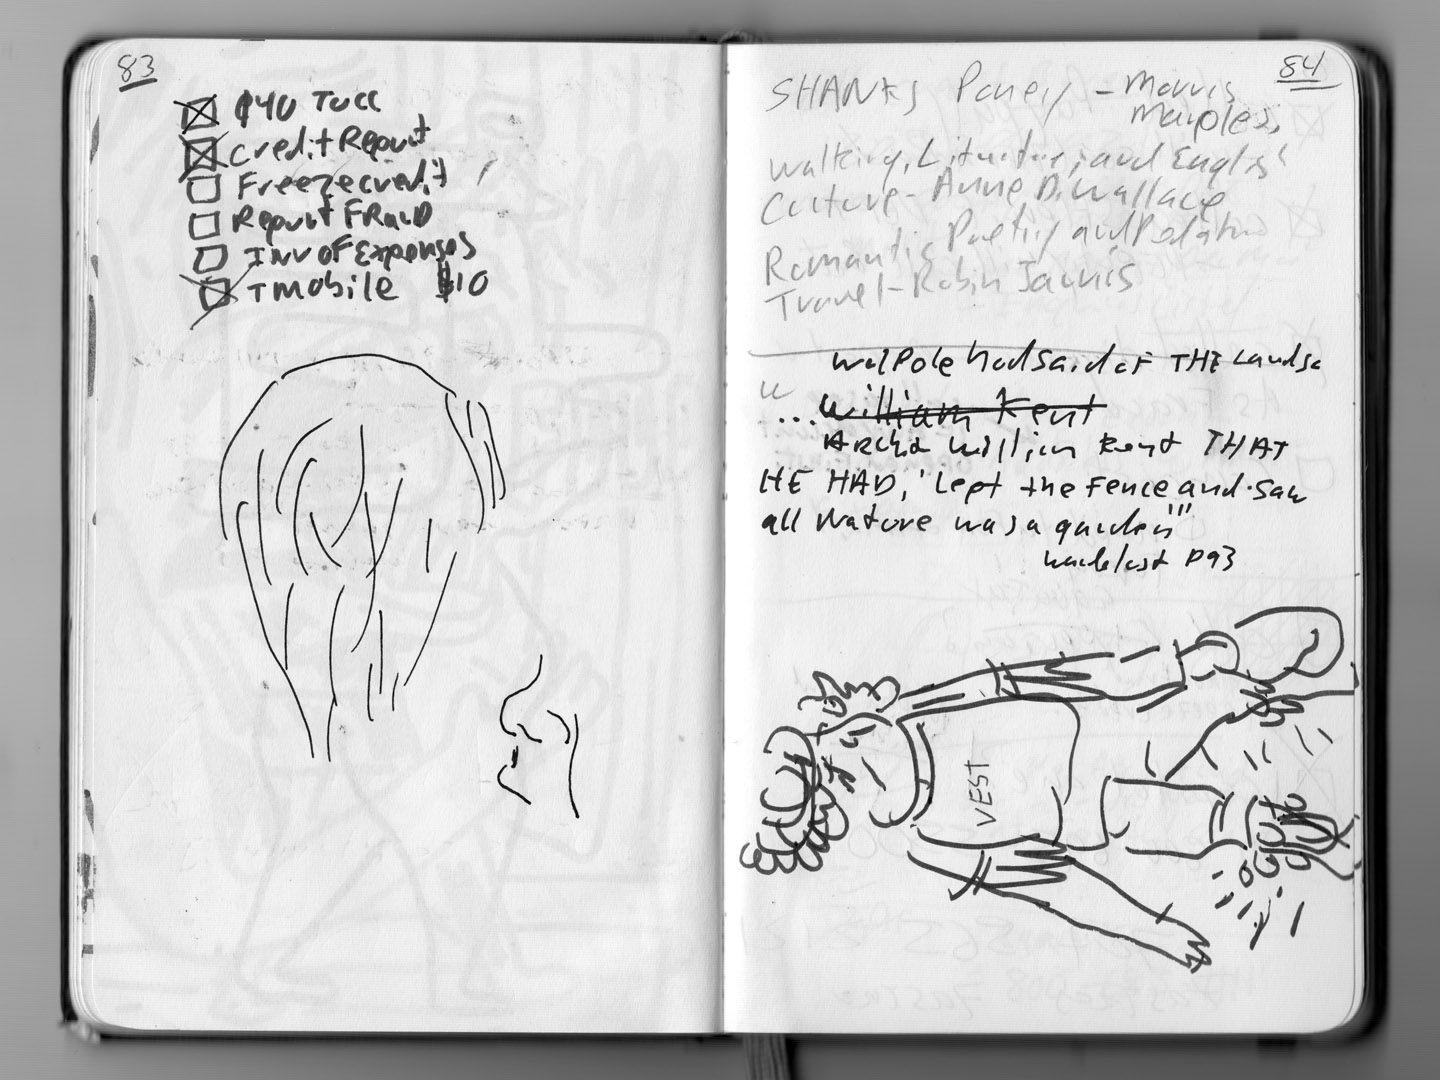 83
$40 Tucc
Credit Report
Freeze credit
Report FRAUD
INV OF Expenses
TMobile $10
84
SHANKS Poney - Morris
Marples,
Walking, Literature, and English
Culture - Anne D. Wallace
Romantic Poetry and Pedestrian
Travel - Robin Jarvis
Walpole had said of THE Landsc
... William Kent
Archt William Kent THAT
HE HAD, "Lept the Fence and saw
all Nature was a garden"
Wanderlust P93
VEST